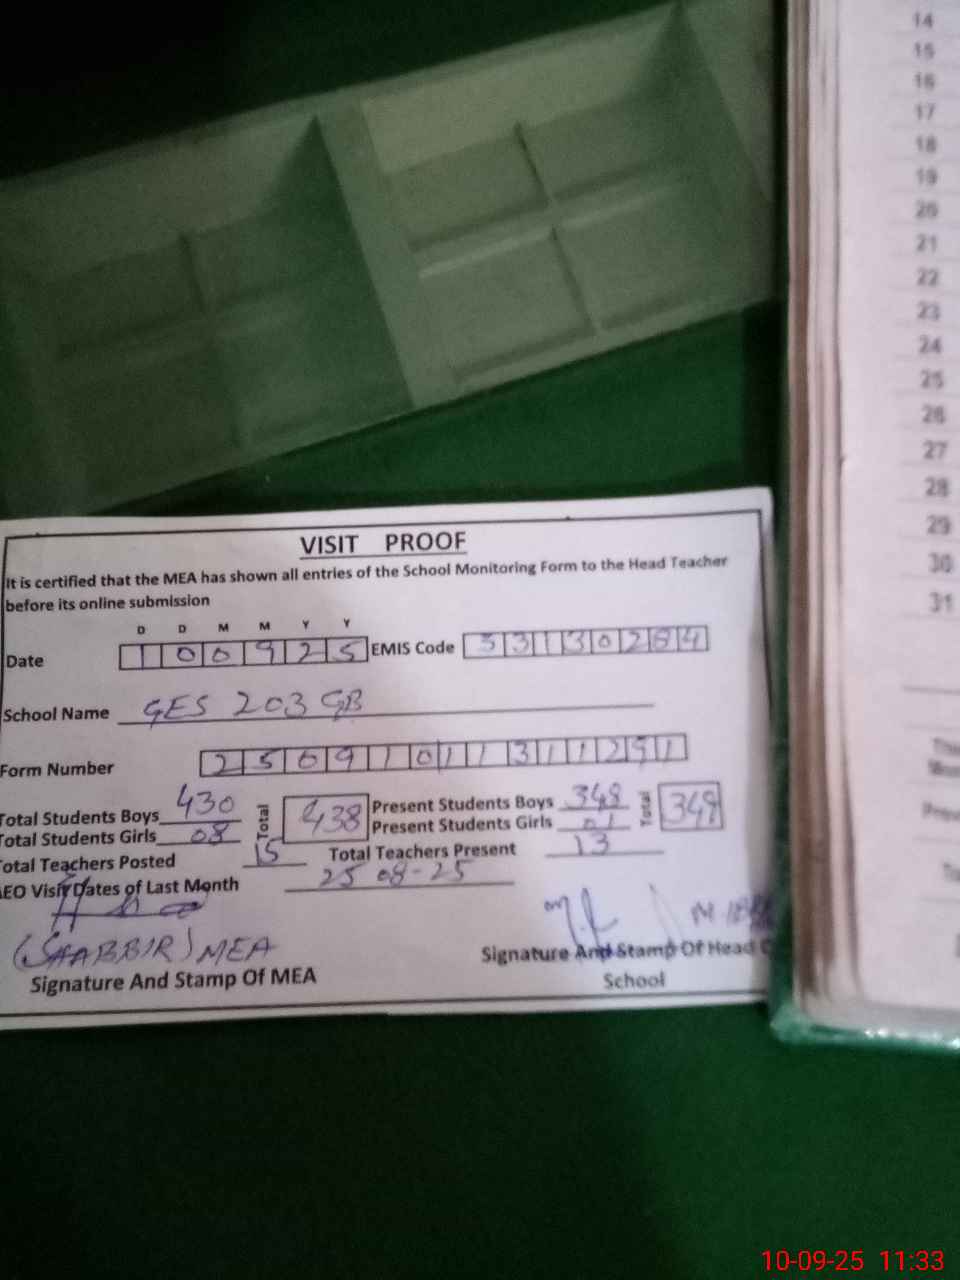 14
15
16
17
18
19
20
21
22
23
24
25
26
27
28
29
30
31
VISIT PROOF
It is certified that the MEA has shown all entries of the School Monitoring Form to the Head Teacher
before its online submission
D D M M Y Y
Date 100925 EMIS Code
School Name GES 203 GB
Form Number
Total Students Boys 430 Total 438 Present Students Boys 348 Total
Total Students Girls 08 Present Students Girls 01
Total Teachers Posted 15 Total Teachers Present 13
AEO Visit Dates of Last Month 25 08-25
(SHABBIR) MEA
Signature And Stamp Of MEA
Signature And Stamp Of Head
School
10-09-25 11:33